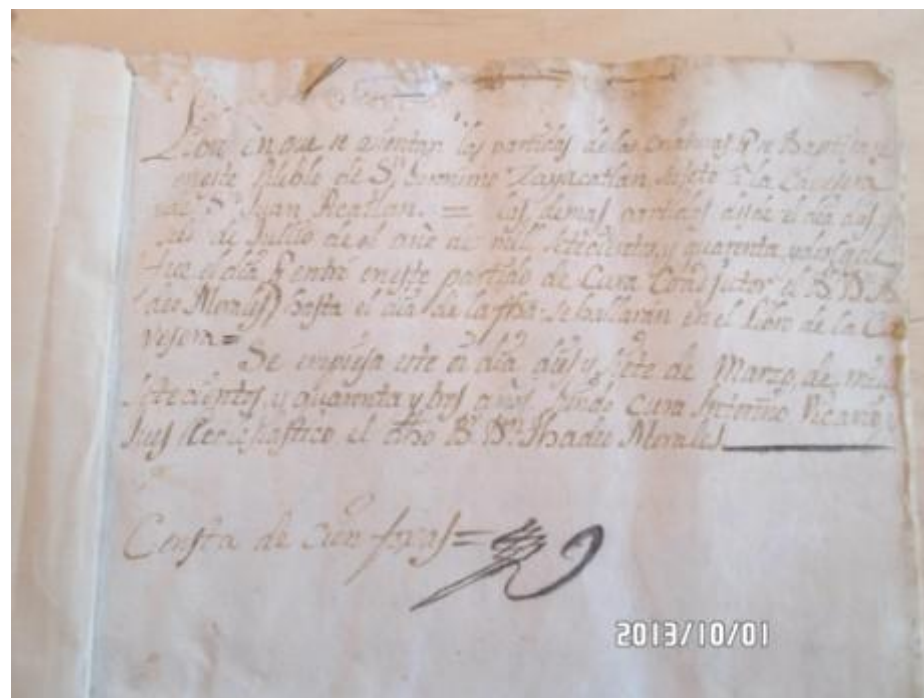 en que se asientan las partidas de las que se Bautisan
en este Pueblo de Sn. Geronimo Zayacatlan, sujeto a la Cavesera
de Sn. Juan = las demas partidas desde el dia dies y
de Jullio de el año de mill setecientos, y quarenta, y dos, que
fue el dia q entró en este partido de Cura Coadjutor el B. D.
Morales) hasta el dia de la fha. se hallaran en el Libro de la Ca
vesera =
Se empiesa este oi dia dies y siete de Marzo, de mill
setecientos, y quarenta y tres años, siendo Cura Vicario, y
Jues el dho B. Dn. Thadeo Morales
Consta de cien foxas =
2013/10/01